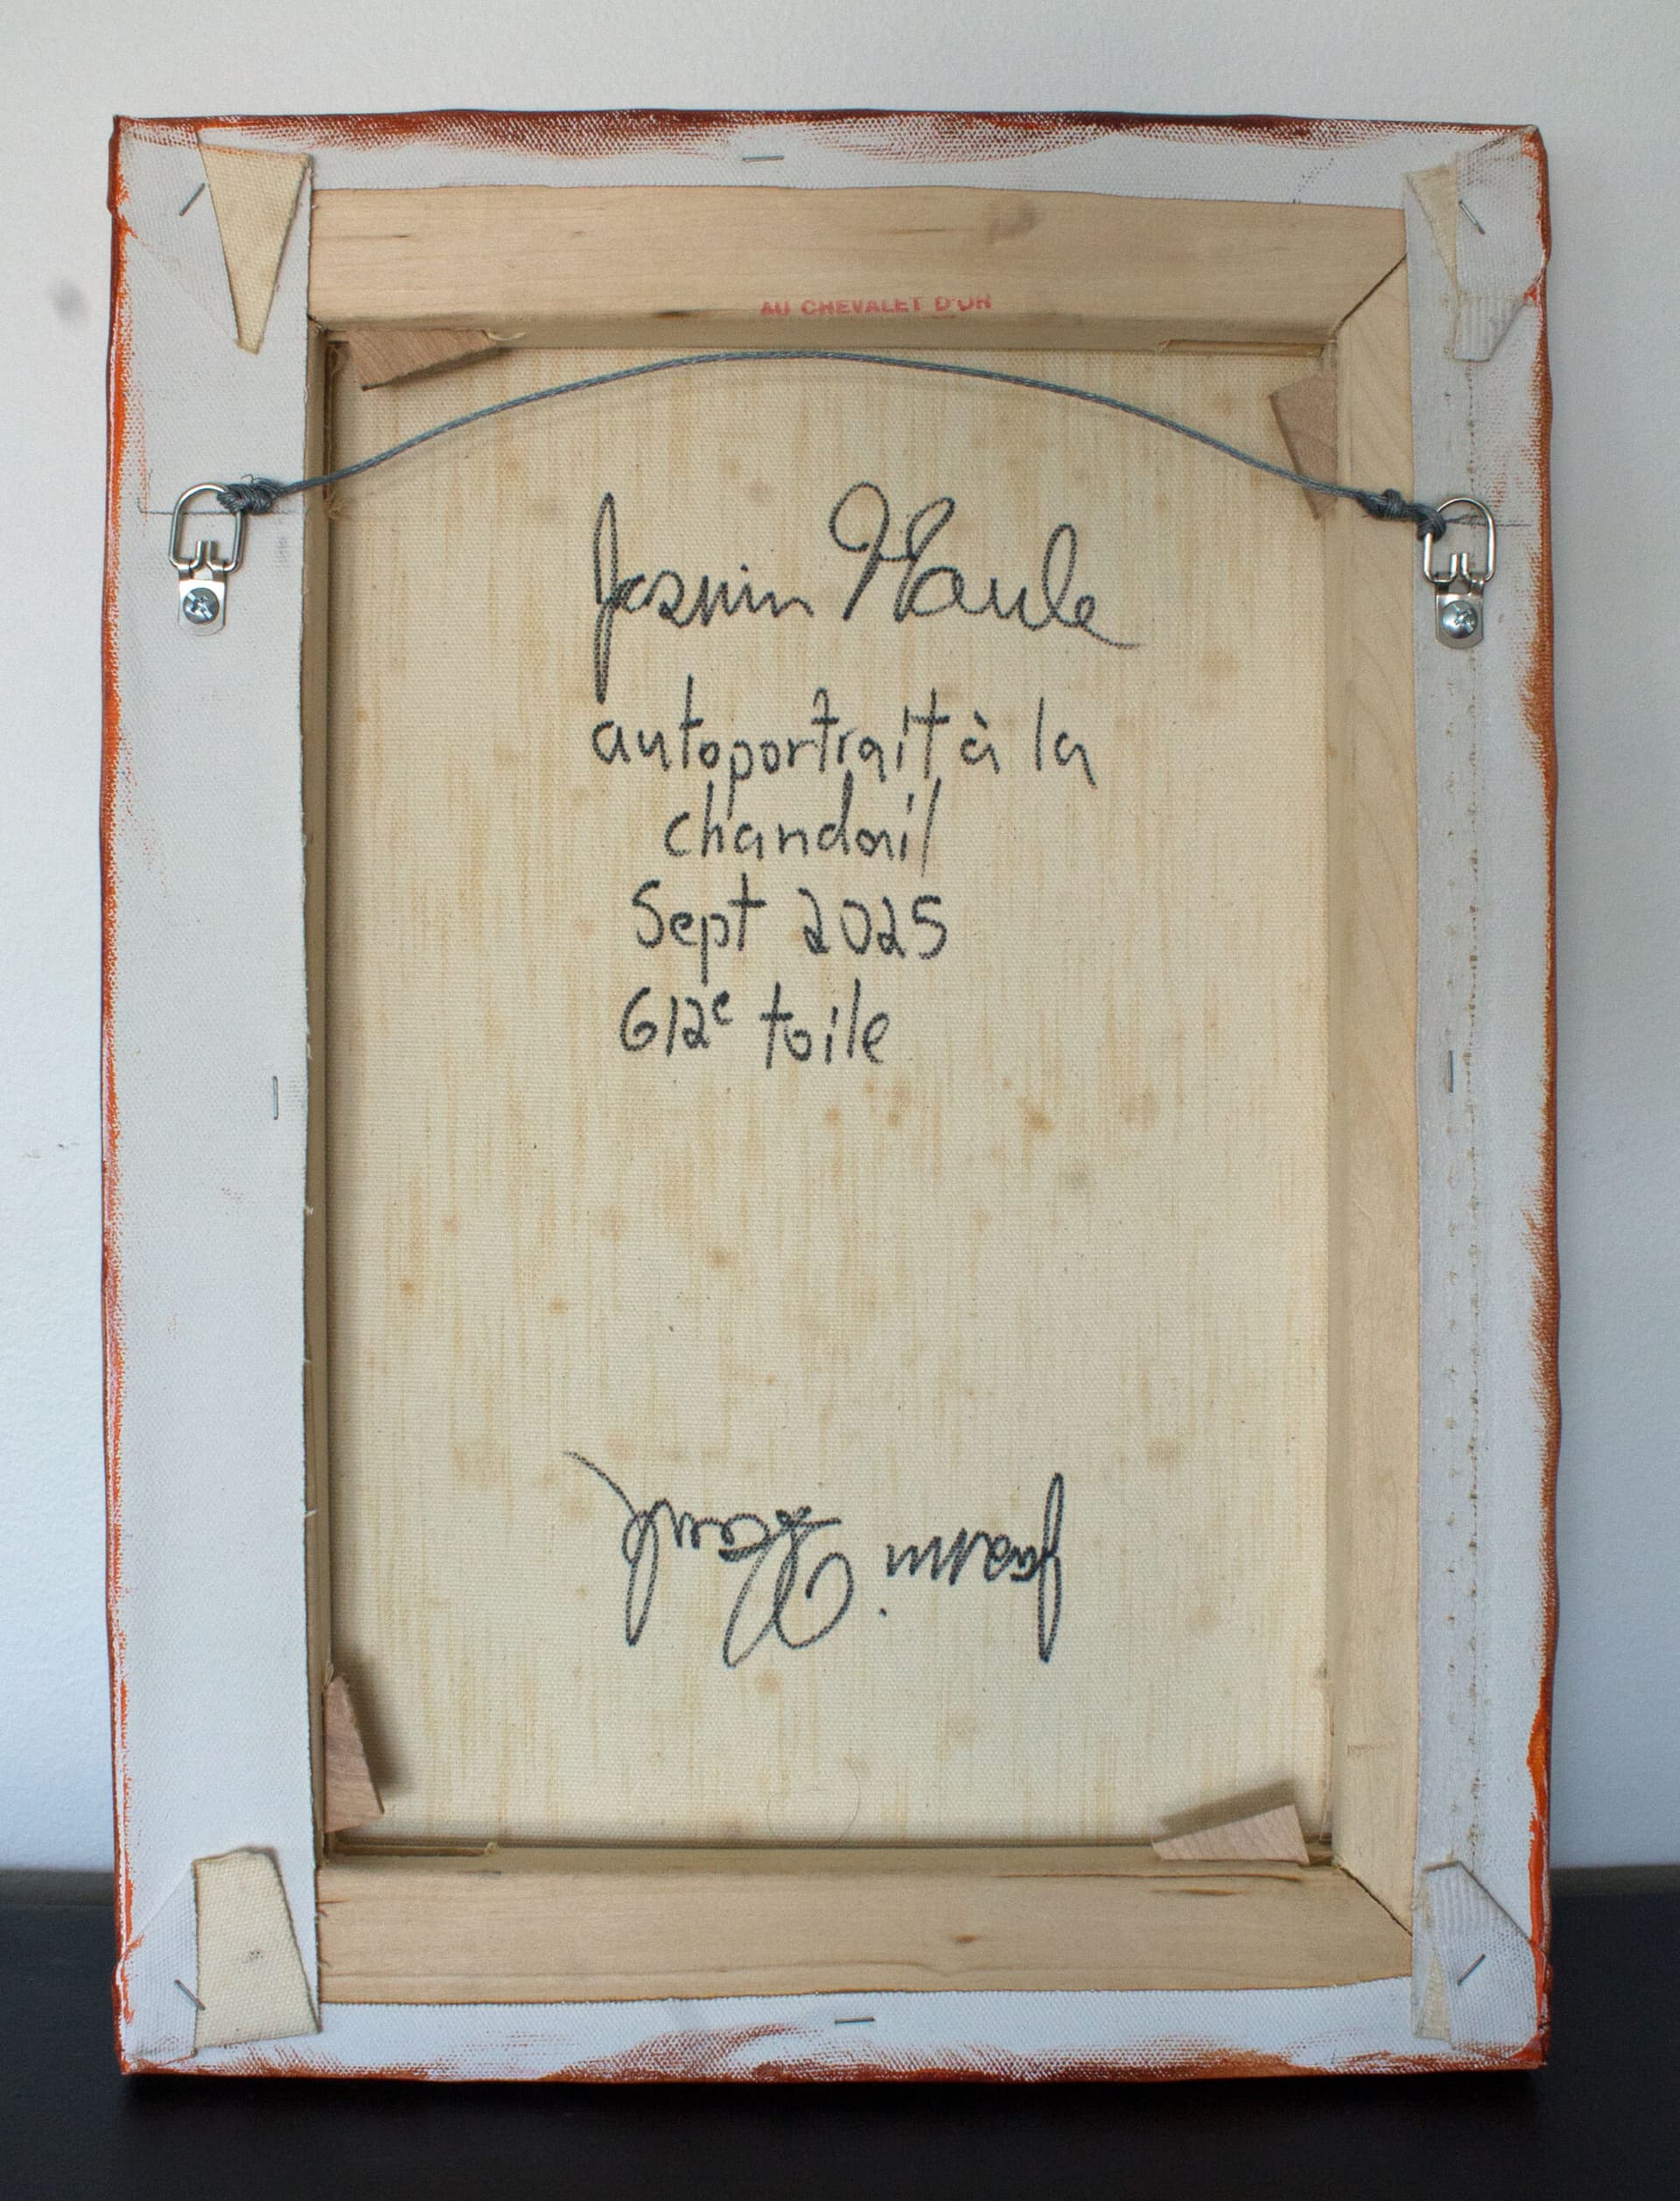 AU CHEVALET D'OR
Jasmin Haule
autoportrait à la
chandail
Sept 2025
612e toile
Jasmin